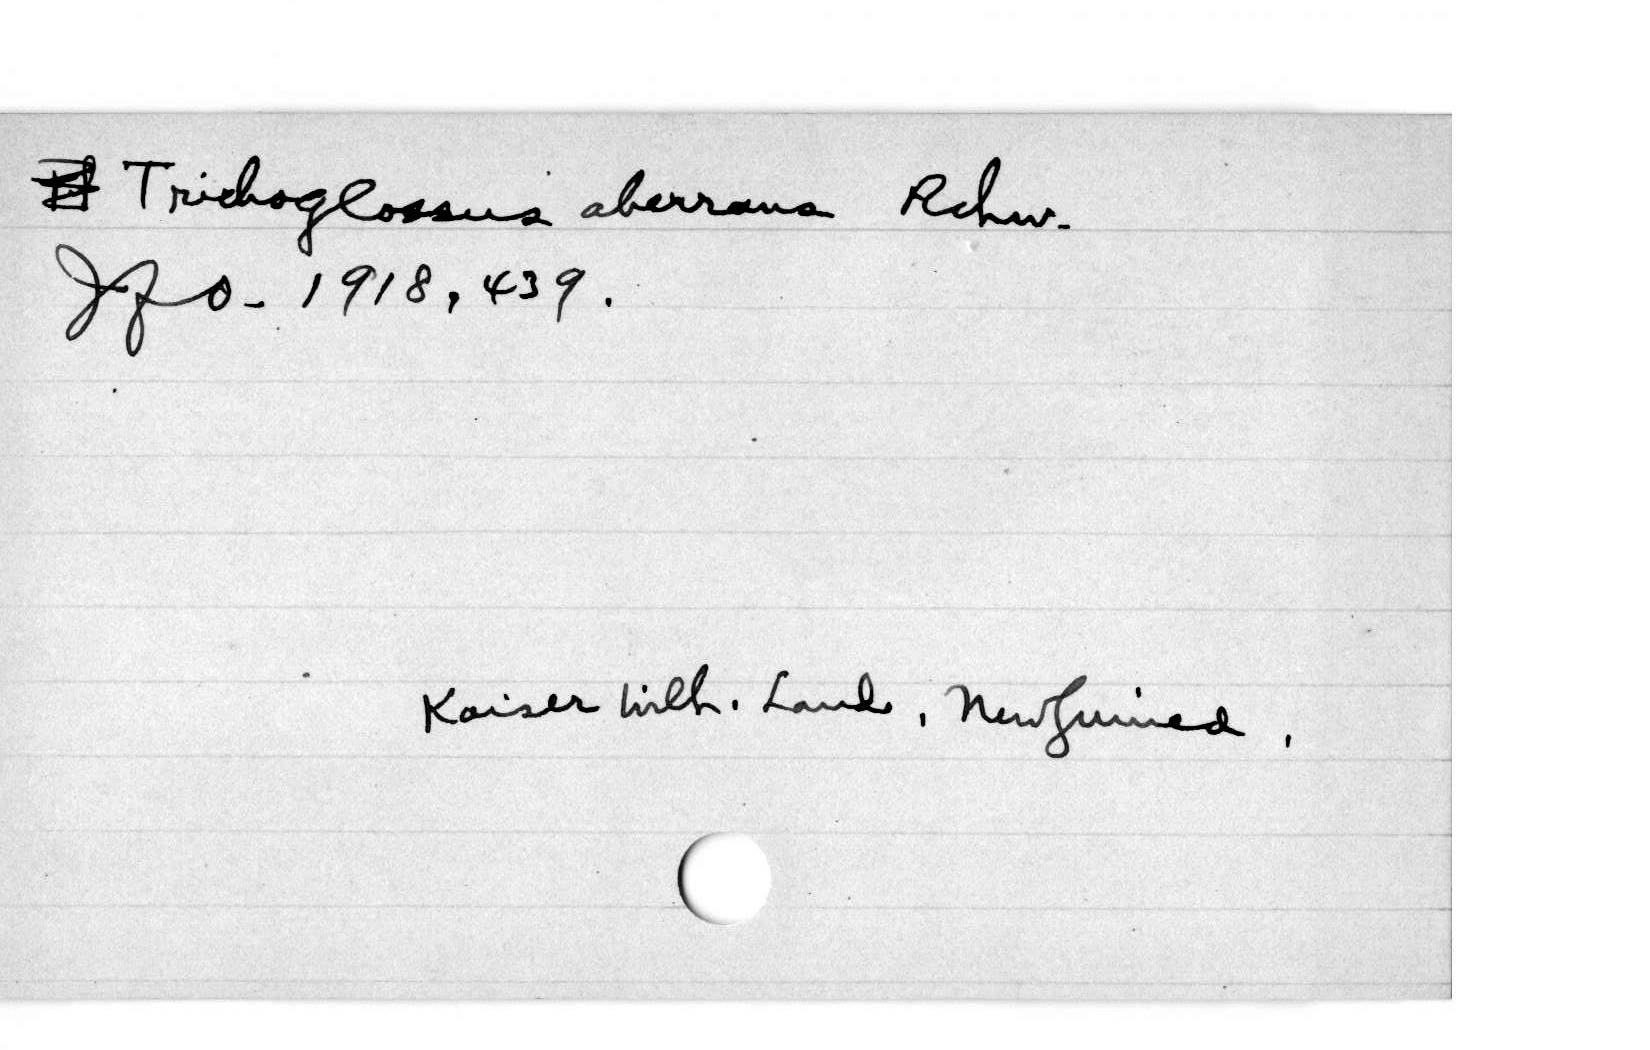 Trichoglossus aberrans Rchw.
Jfo. 1918, 439.
Kaiser Wilh. Land, New Guinea,